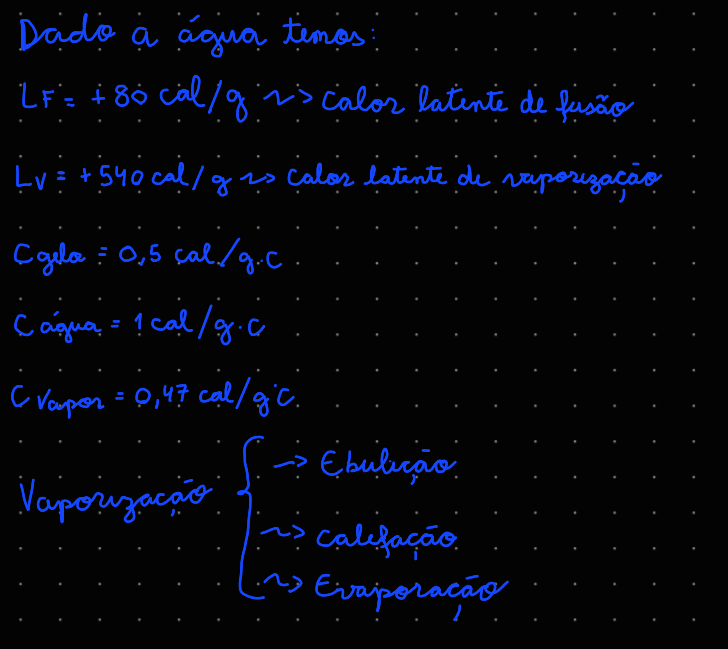 Dado a água temos:
LF = +80 cal/g ~> Calor latente de fusão
Lv = +540 cal/g ~> Calor latente de vaporização
C gelo = 0,5 cal/g.c
C água = 1 cal/g.c
C vapor = 0,47 cal/g°C
Vaporização { -> Ebulição
~> Calefação
~> Evaporação